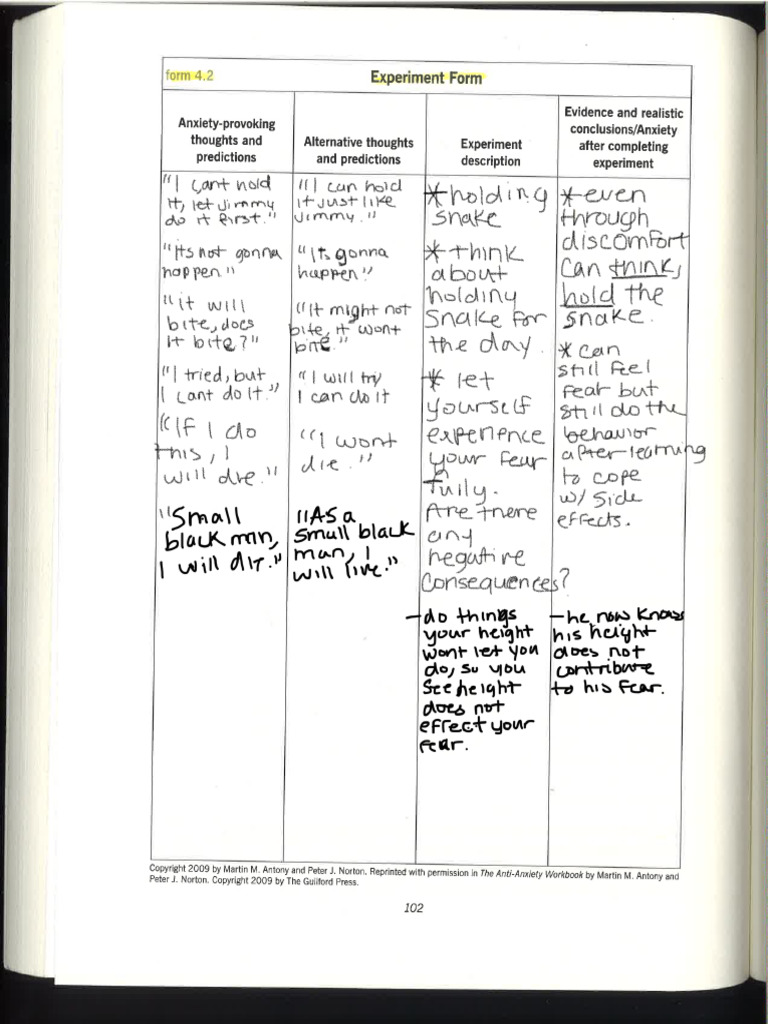 form 4.2
Experiment Form
Anxiety-provoking
thoughts and
predictions
"I cant hold
it, let Jimmy
do it first."
"Its not gonna
happen"
"it will
bite, does
it bite?"
"I tried, but
I cant do it."
"If I do
this, I
will die."
"Small
black man,
I will die."
Alternative thoughts
and predictions
"I can hold
it just like
Jimmy."
"Its gonna
happen"
"It might not
bite, it wont
bite."
"I will try
I can do it
"I wont
die."
"As a
small black
man, I
will live."
Experiment
description
* holding
snake
* think
about
holding
snake for
the day.
* let
yourself
experience
your fear
fully.
Are there
any
negative
consequences?
- do things
your height
wont let you
do, so you
see height
does not
effect your
fear.
Evidence and realistic
conclusions/Anxiety
after completing
experiment
* even
through
discomfort
can think,
hold the
snake.
* can
still feel
fear but
still do the
behavior
after learning
to cope
w/ side
effects.
- he now knows
his height
does not
contribute
to his fear.
Copyright 2009 by Martin M. Antony and Peter J. Norton. Reprinted with permission in The Anti-Anxiety Workbook by Martin M. Antony and
Peter J. Norton. Copyright 2009 by The Guilford Press.
102